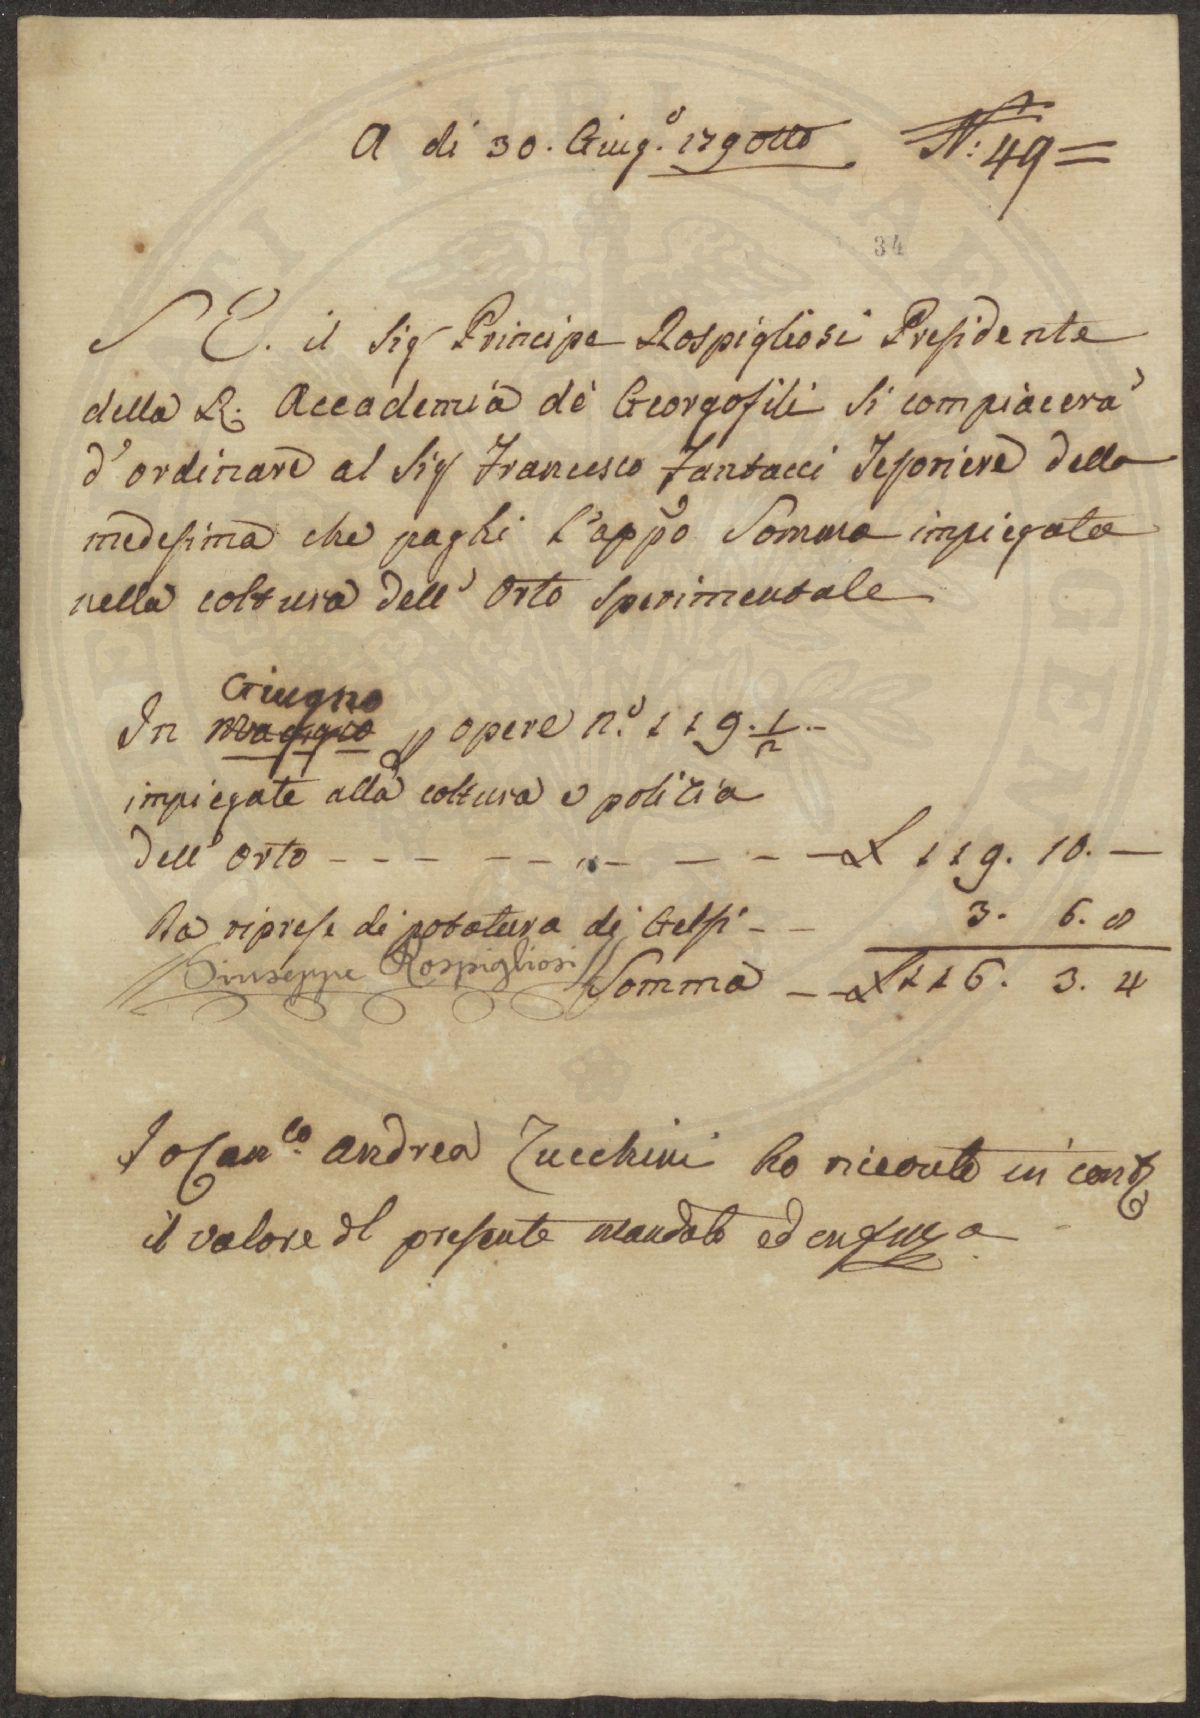 A dì 30. Giug.o 179otto N.: 49=
34
S E. il Sig Principe Rospigliosi Presidente
della R. Accademia de' Georgofili si compiacerà
d'ordinare al Sig Francesco Fantacci Tesoriere della
medesima che paghi l'appo Somma impiegata
nella coltura dell' Orto Sperimentale
Giugno
In Maggio p opere n.o 119. 1/2 -
impiegate alla coltura e polizia
dell' Orto - - - - - - - - - £ 119. 10. —
Da riprese di potatura di Gelsi - - 3. 6. 8
Giuseppe Rospigliosi Somma - - £ 116. 3. 4
Io Can.co Andrea Zucchini ho ricevuto in conti
il valore del presente mandato ed in